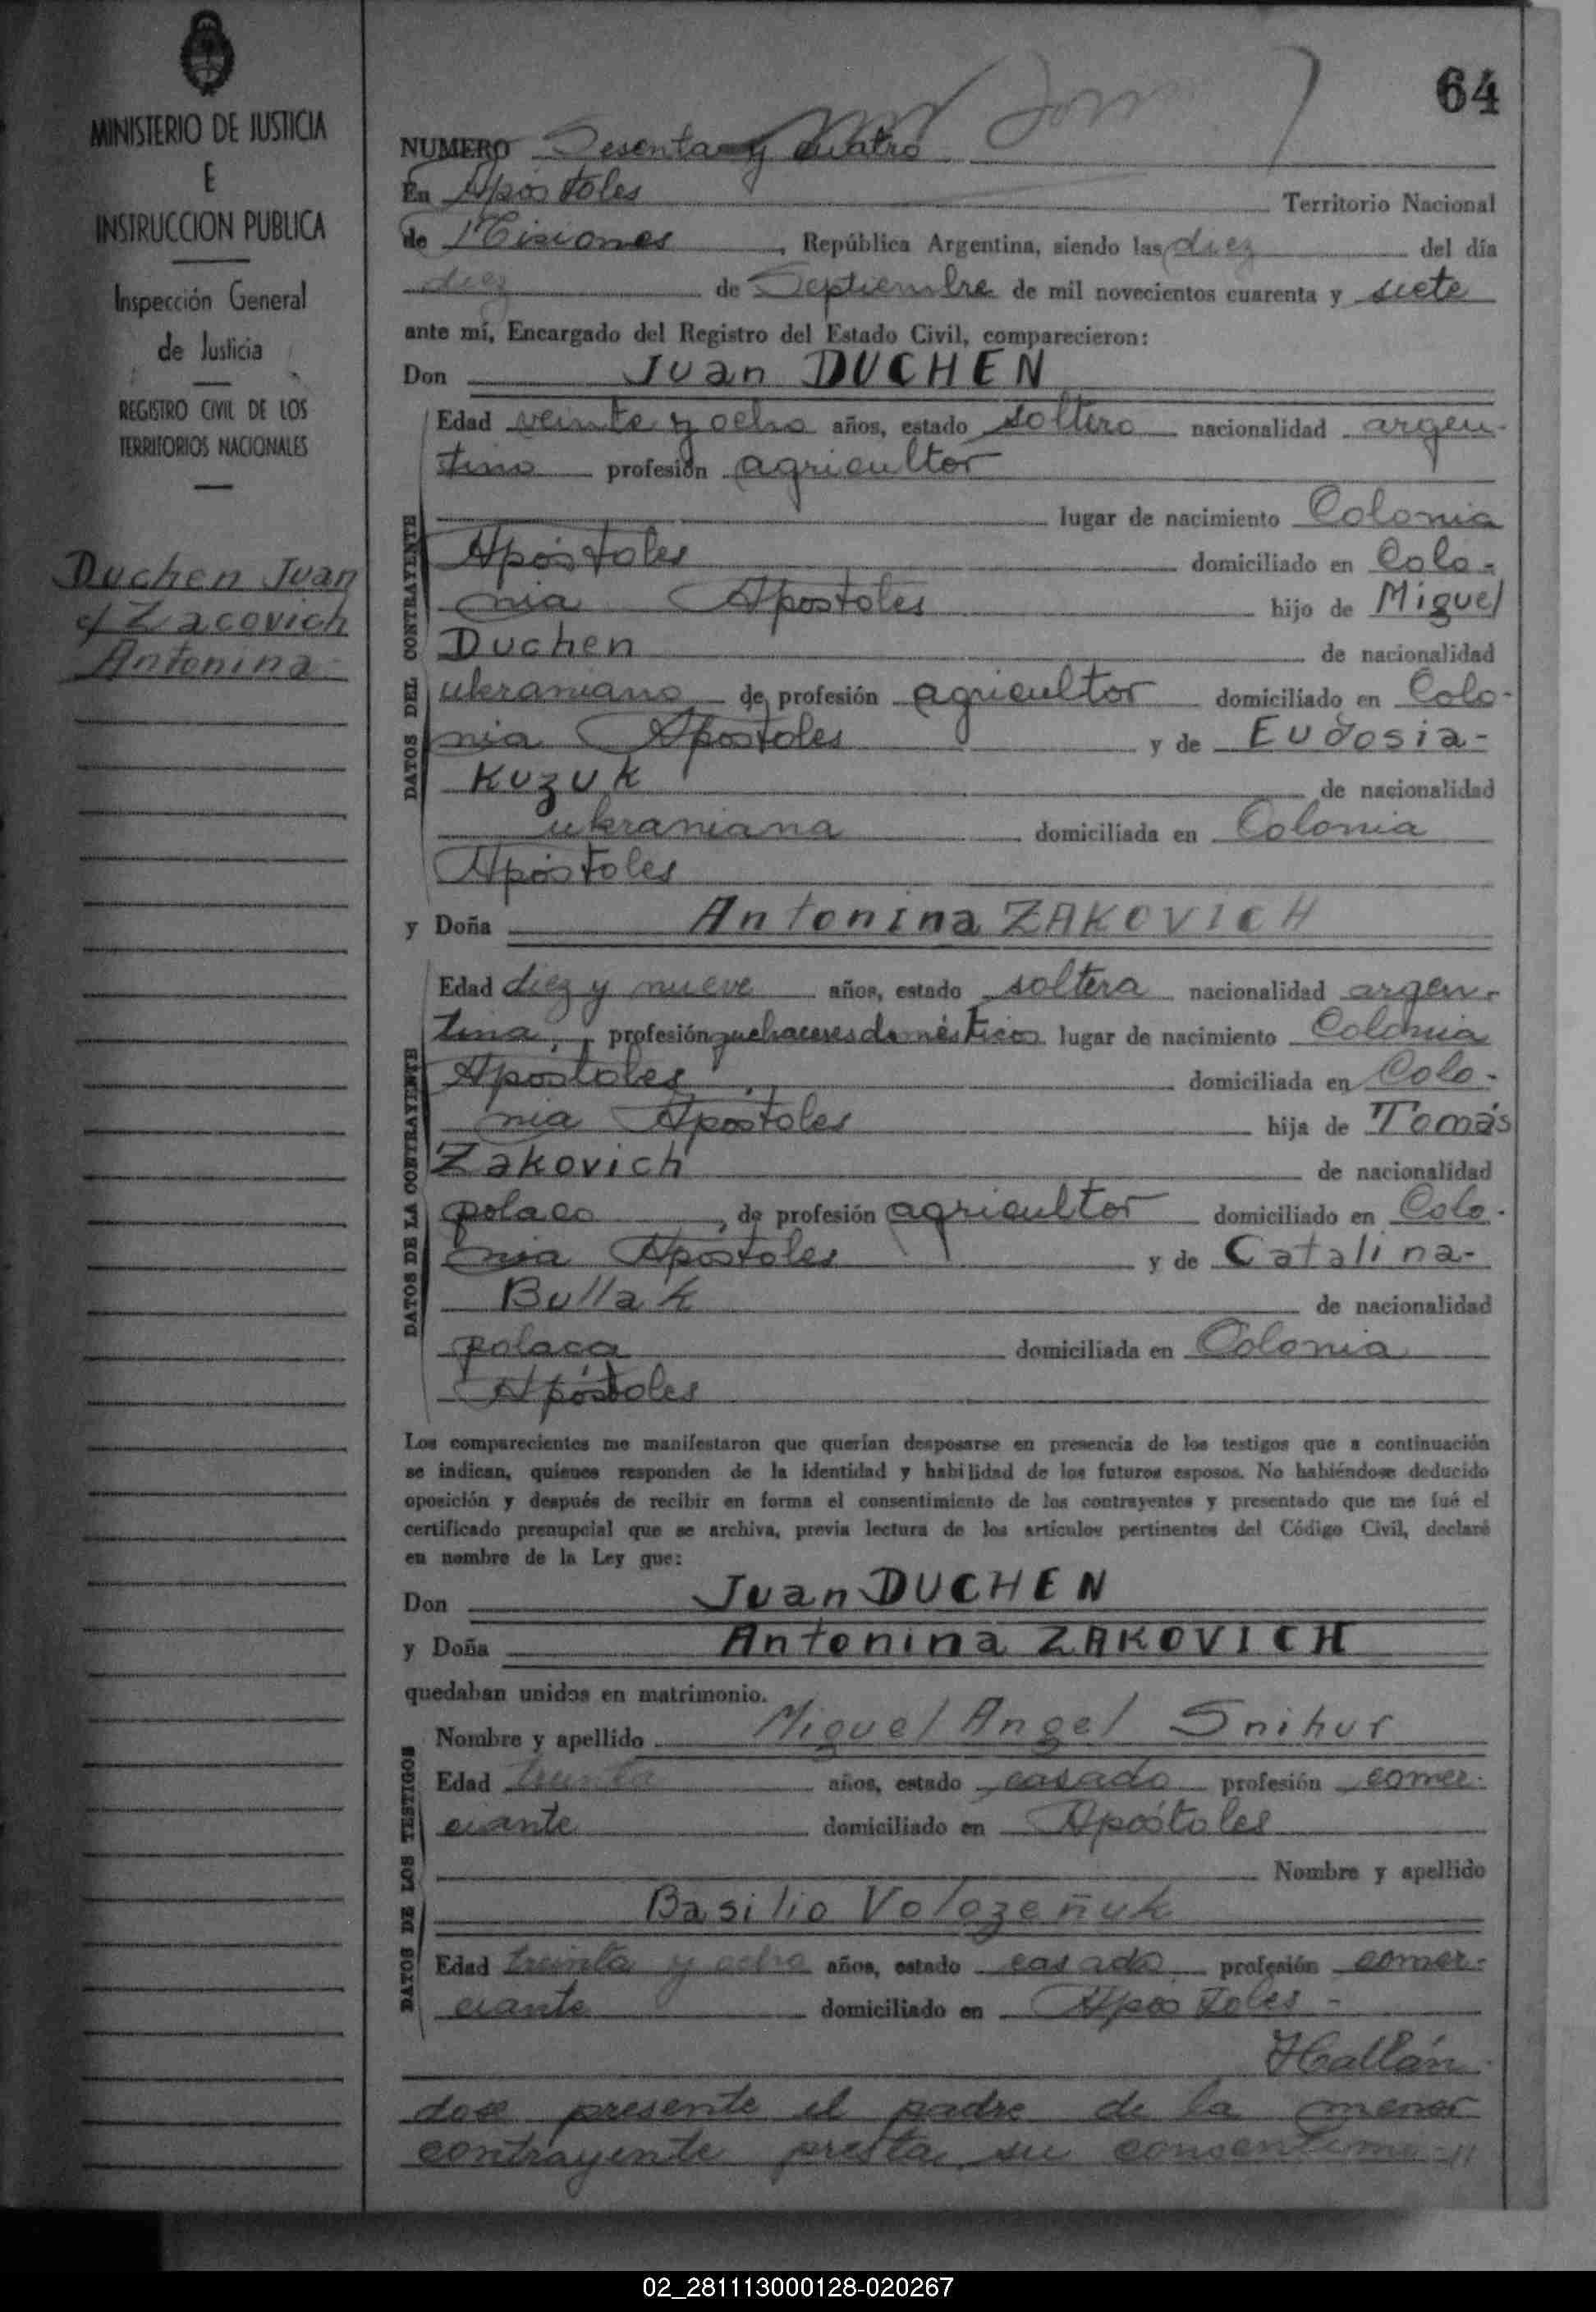 64
MINISTERIO DE JUSTICIA
E
INSTRUCCION PUBLICA
Inspección General
de Justicia
REGISTRO CIVIL DE LOS
TERRITORIOS NACIONALES
Duchen Juan
c/ Zacovich
Antonina
NUMERO Sesenta y cuatro
En Apóstoles Territorio Nacional
de Misiones, República Argentina, siendo las diez del día
diez de Septiembre de mil novecientos cuarenta y siete
ante mí, Encargado del Registro del Estado Civil, comparecieron:
Don Juan DUCHEN
DATOS DEL CONTRAYENTE
Edad veinte y ocho años, estado soltero nacionalidad argen-
tino profesión agricultor
lugar de nacimiento Colonia
Apóstoles domiciliado en Colo-
nia Apóstoles hijo de Miguel
Duchen de nacionalidad
ukraniano de profesión agricultor domiciliado en Colo-
nia Apóstoles y de Eudosia-
Kuzuk de nacionalidad
ukraniana domiciliada en Colonia
Apóstoles
y Doña Antonina ZAKOVICH
DATOS DE LA CONTRAYENTE
Edad diez y nueve años, estado soltera nacionalidad argen-
tina, profesión quehaceres domésticos lugar de nacimiento Colonia
Apóstoles, domiciliada en Colo-
nia Apóstoles hija de Tomás
Zakovich de nacionalidad
polaco, de profesión agricultor domiciliado en Colo-
nia Apóstoles y de Catalina-
Bullak de nacionalidad
polaca domiciliada en Colonia
Apóstoles
Los comparecientes me manifestaron que querían desposarse en presencia de los testigos que a continuación
se indican, quienes responden de la identidad y habilidad de los futuros esposos. No habiéndose deducido
oposición y después de recibir en forma el consentimiento de los contrayentes y presentado que me fué el
certificado prenupcial que se archiva, previa lectura de los artículos pertinentes del Código Civil, declaré
en nombre de la Ley que:
Don Juan DUCHEN
y Doña Antonina ZAKOVICH
quedaban unidos en matrimonio.
DATOS DE LOS TESTIGOS
Nombre y apellido Miguel Angel Snihur
Edad treinta años, estado casado profesión comer-
ciante domiciliado en Apóstoles
Nombre y apellido
Basilio Volozeñuk
Edad treinta y ocho años, estado casado profesión comer-
ciante domiciliado en Apóstoles-
Hallán-
dose presente el padre de la menor
contrayente presta su consentimien
02_281113000128-020267